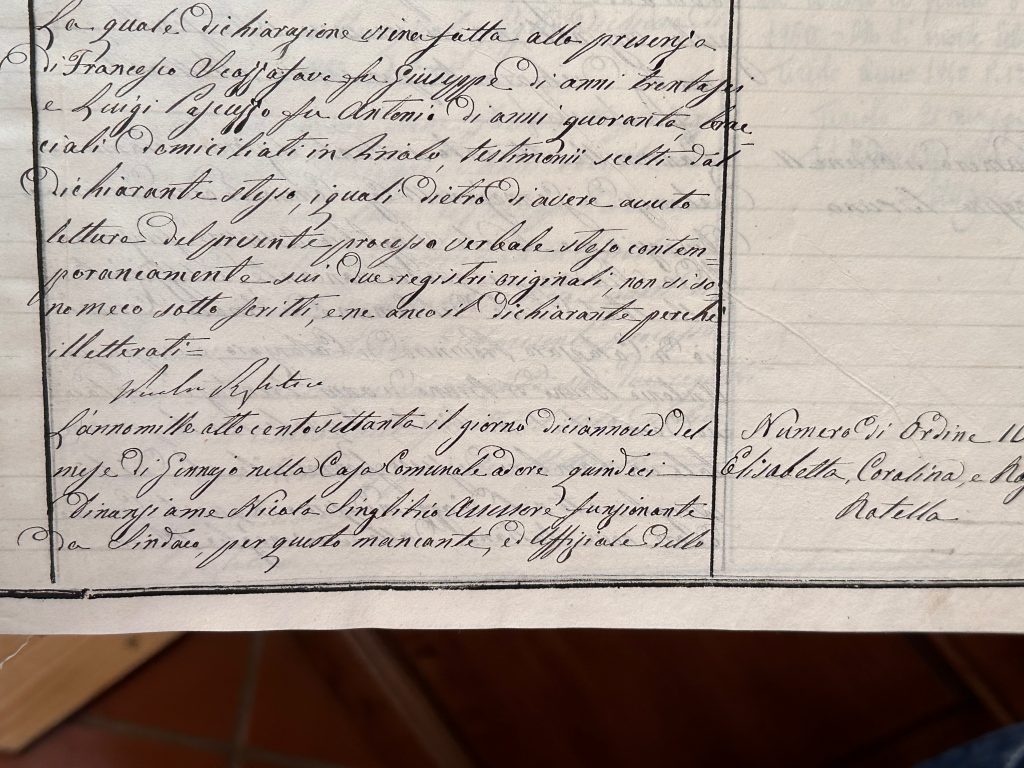 La quale dichiarazione viene fatta alla presenza
di Francesco Scazzafave fu Giuseppe di anni trentasei
e Luigi Pascuzzo fu Antonio di anni quaranta, brac=
ciali domiciliati in testimonii scelti dal
dichiarante stesso, i quali dietro di avere avuto
lettura del presente processo verbale steso contem=
poraneamente sui due registri originali, non si so=
no meco sotto scritti, e ne anco il dichiarante perché
illetterati=
Nicola
L'anno mille otto cento settanta il giorno diciannove del
mese di Gennajo nella Casa Comunale ad ore quindeci
Dinanzi a me Nicola Assessore funzionante
da Sindaco, per questo mancante, ed Uffiziale dello
Numero di Ordine
Elisabetta, Coralina, e
Rotella